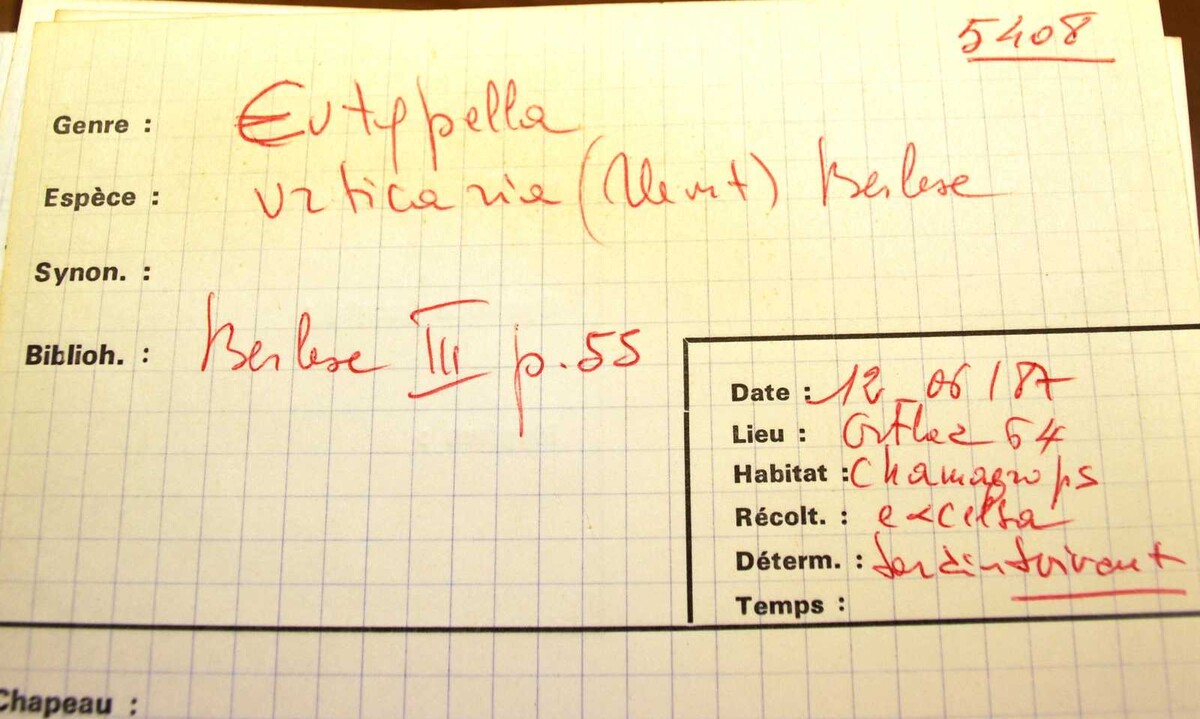 5408
Genre : Eutypella
Espèce : urticaria (Mont) Berlese
Synon. :
Biblioh. : Berlese III p. 55
Date : 12_06/87
Lieu : Orthez 64
Habitat : Chamaerops
Récolt. : excelsa
Déterm. : Jardin
Temps :
Chapeau :